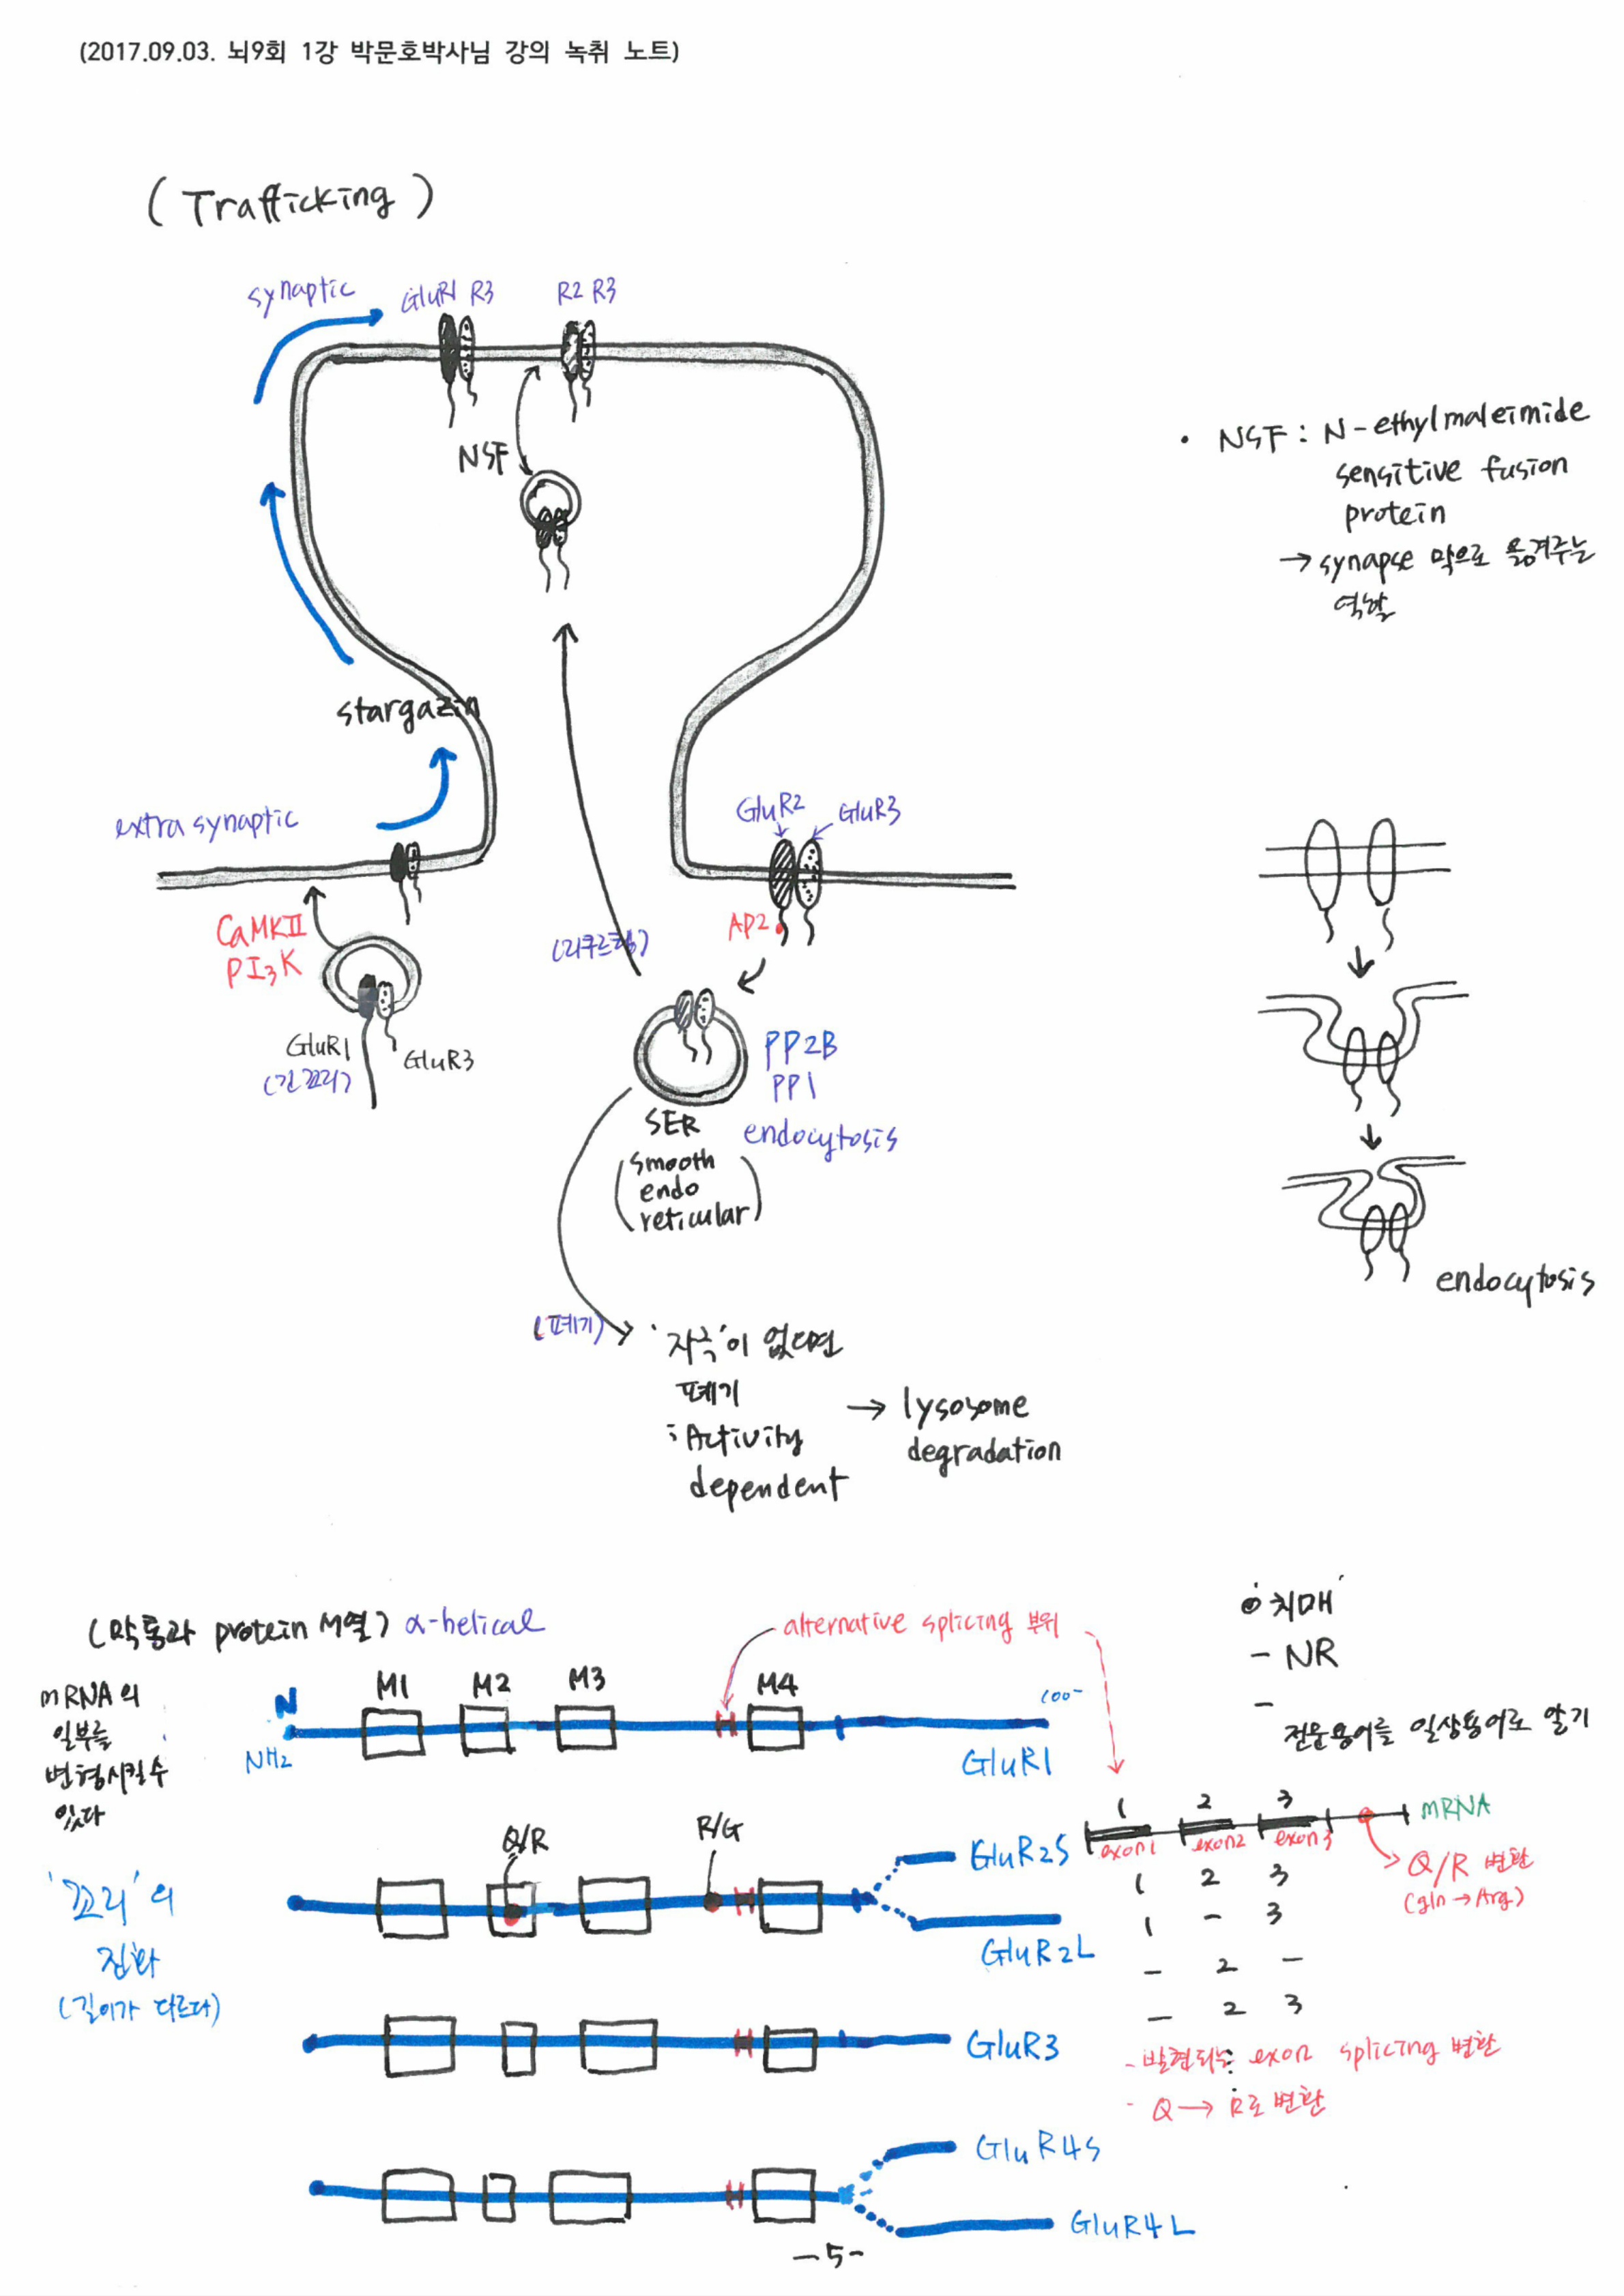 (2017.09.03. 뇌9회 1강 박문호박사님 강의 녹취 노트)
(Trafficking)
synaptic
GluR1 R3
R2 R3
NSF
• NSF : N-ethylmaleimide
sensitive fusion
protein
→ synapse 막으로 옮겨주는
역할
stargazin
extra synaptic
GluR2
GluR3
CaMKⅡ
PI3K
AP2
(리쿠르팅)
GluR1
(긴꼬리)
GluR3
PP2B
PP1
endocytosis
SER
(smooth
endo
reticular)
endocytosis
(폐기)
'자극'이 없다면
폐기
: Activity
dependent
→ lysosome
degradation
(막통과 protein 서열) α-helical
alternative splicing 부위
치매
- NR
-
전문용어를 일상용어로 알기
mRNA의
일부를
변형시킬수
있다
N
NH2
M1
M2
M3
M4
coo-
GluR1
1 2 3
mRNA
exon1 exon2 exon3
Q/R 변환
(gln → Arg)
1 2 3
1 - 3
- 2 -
- 2 3
- 발현되는 exon splicing 변환
- Q → R로 변환
'꼬리'의
진화
(길이가 다르다)
Q/R
R/G
GluR2S
GluR2L
GluR3
GluR4S
GluR4L
-5-